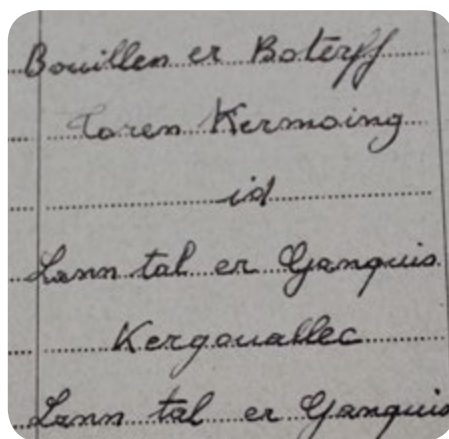 Bouillen er Boterff
Toren Kermoing
id
Lann tal er Ganquis
Kergouallec
Lann tal er Ganquis